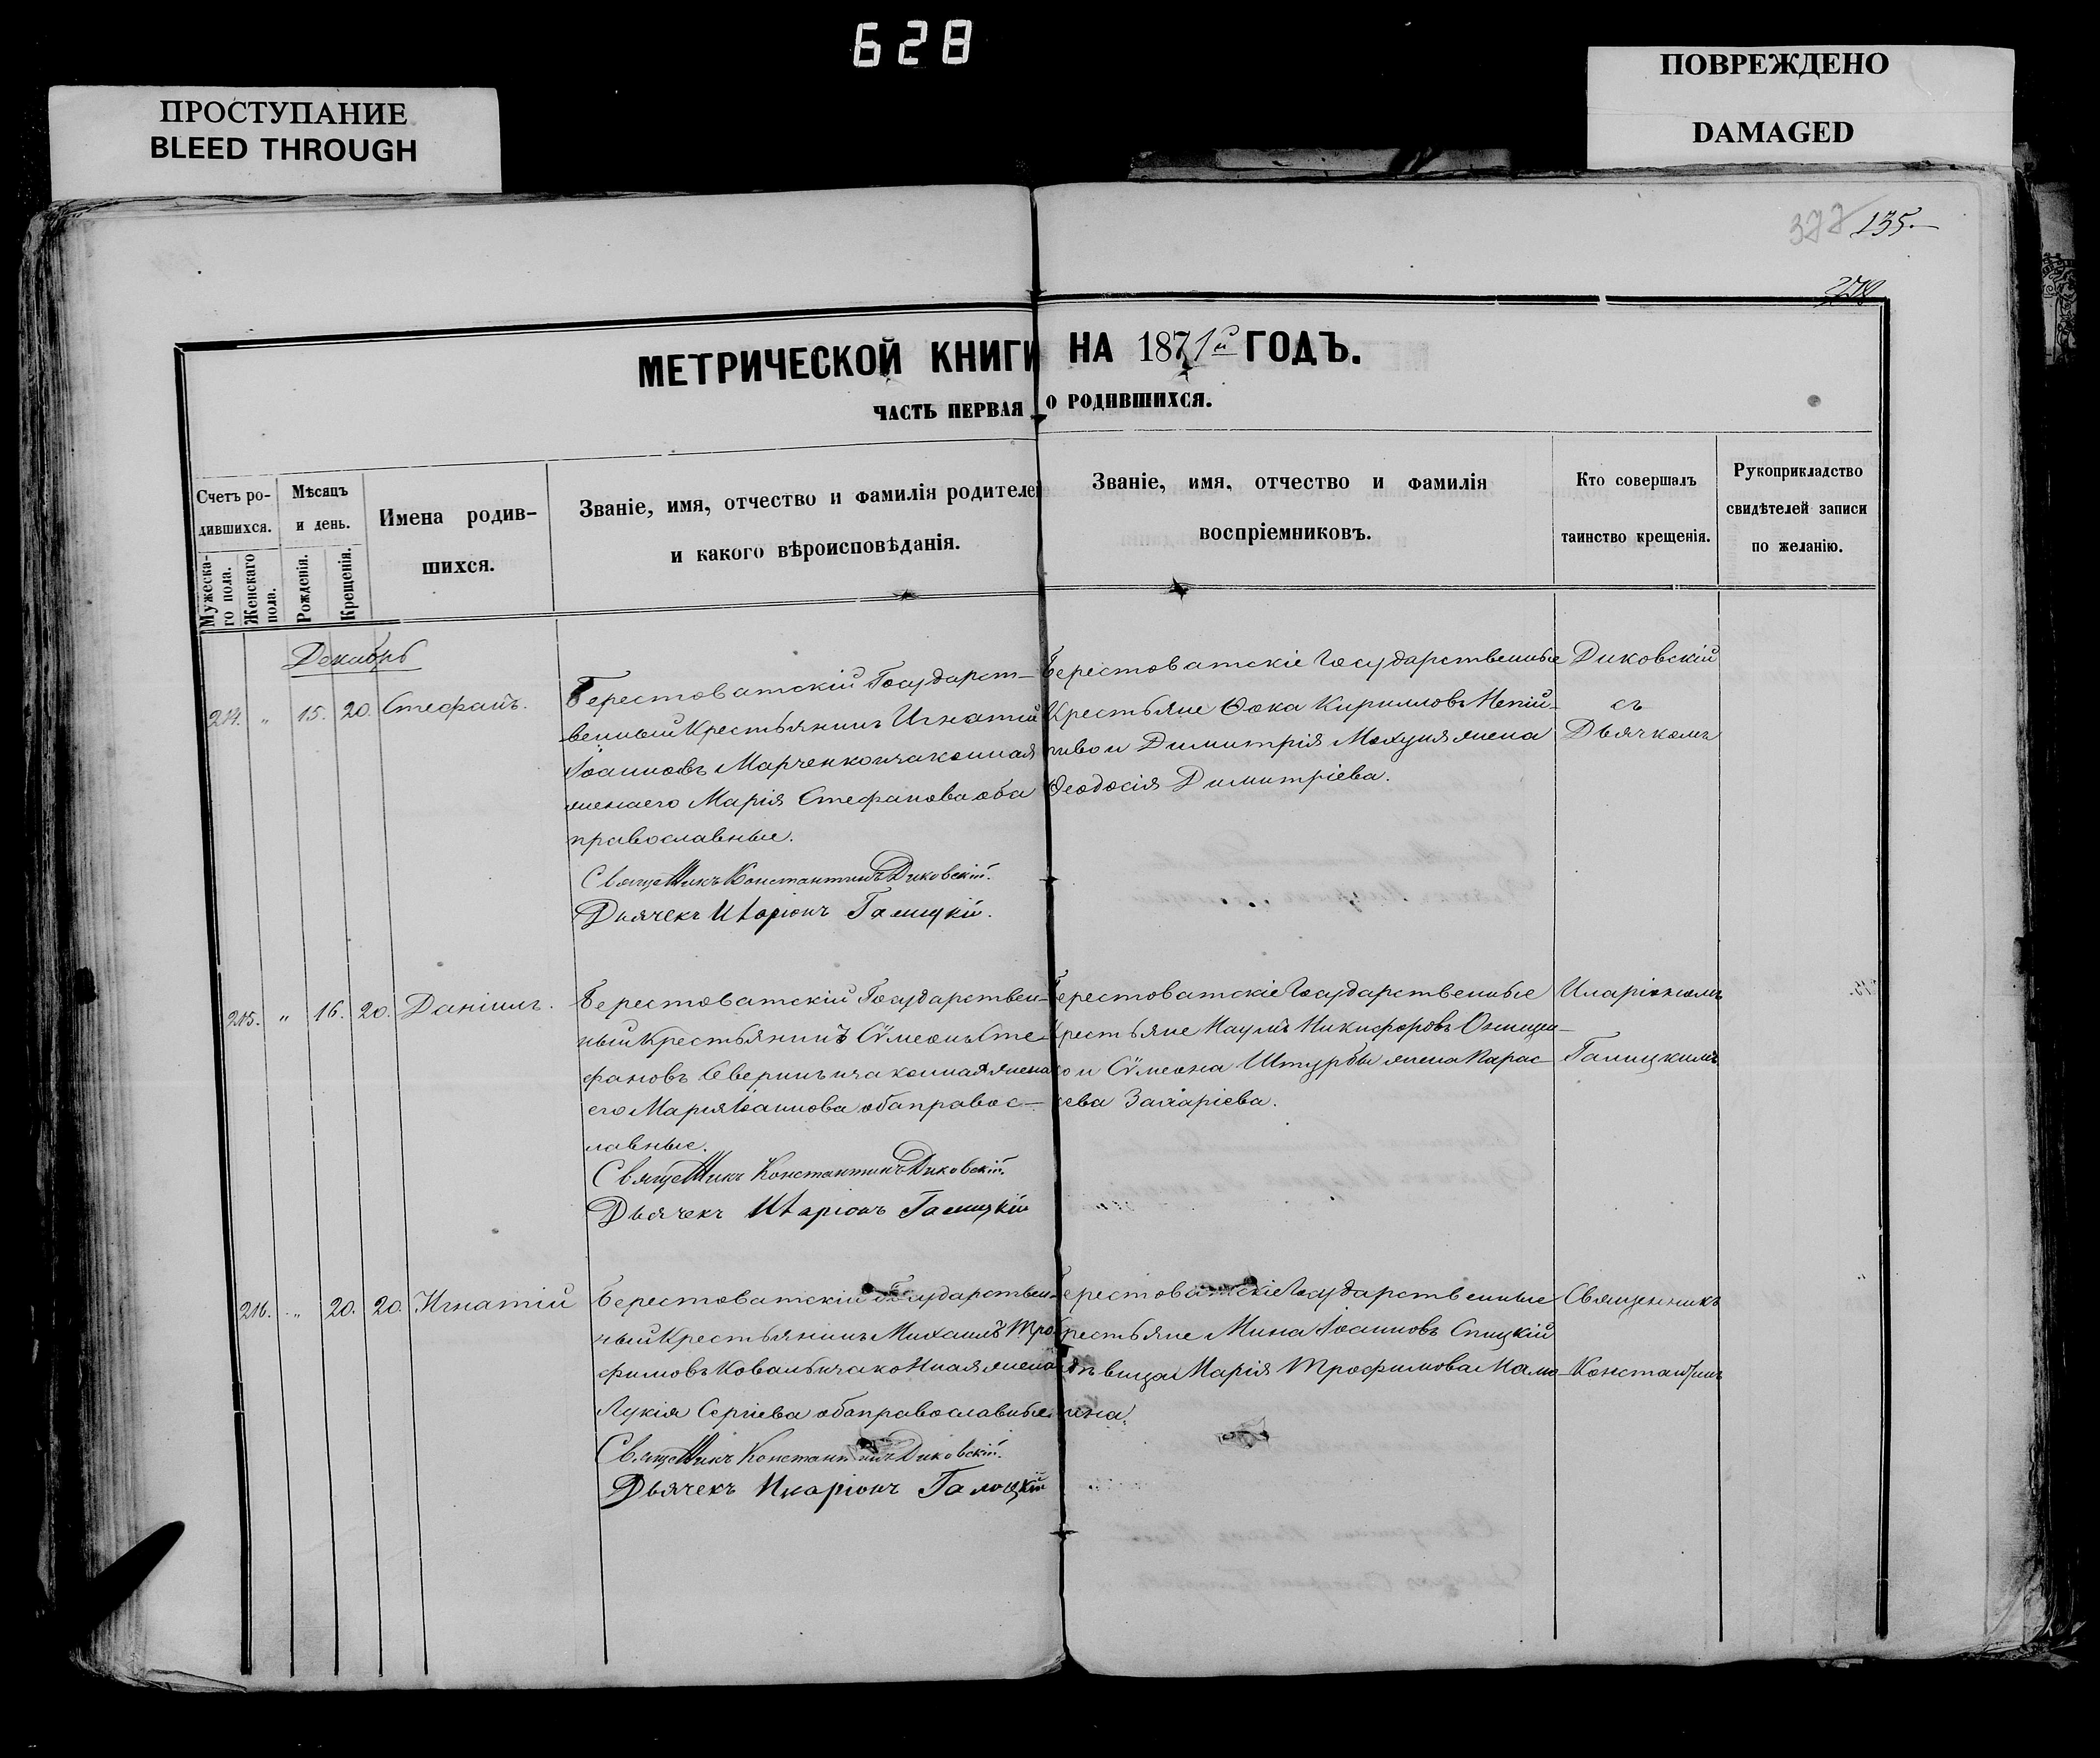 628
ПРОСТУПАНИЕ
BLEED THROUGH
ПОВРЕЖДЕНО
DAMAGED
377 135.
МЕТРИЧЕСКОЙ КНИГИ НА 1871й ГОДЪ.
ЧАСТЬ ПЕРВАЯ О РОДИВШИХСЯ.
Счетъ ро-
дившихся.
Мужеска-
го пола.
Женскаго
пола.
Мѣсяцъ
и день.
Рожденія.
Крещенія.
Имена родив-
шихся.
Званіе, имя, отчество и фамилія родителей
и какого вѣроисповѣданія.
Званіе, имя, отчество и фамилія
воспріемниковъ.
Кто совершалъ
таинство крещенія.
Рукоприкладство
свидѣтелей записи
по желанію.
Декабрь
214. " 15. 20. Стефанъ.
Берестоватскій Государст-
венный Крестьянинъ Игнатій
Іоанновъ Марченко и законная
жена его Марія Стефанова оба
православные.
Священникъ Константинъ Диковскій.
Дьячекъ Иларіонъ Галицкій.
Берестоватскіе Государственные
Крестьяне Ѳока Кирилловъ Непій-
пиво и Димитрія Мохуня жена
Ѳеодосія Димитріева.
Диковскій
съ
Дьячкомъ
215. " 16. 20. Даніилъ.
Берестоватскій Государствен-
ный Крестьянинъ Сѵмеонъ Сте-
фановъ Северинъ и законная жена
его Марія Іоаннова оба правос-
лавные.
Священникъ Константинъ Диковскій.
Дьячекъ Иларіонъ Галицкій
Берестоватскіе Государственные
Крестьяне Наумъ Никифоровъ
и Сѵмеона Штурбы жена Парас-
кева Захаріева.
Иларіономъ
Галицкимъ
216. " 20. 20. Игнатій
Берестоватскій Государствен-
ный Крестьянинъ Михаилъ Тро-
фимовъ Коваль и законная жена
Лукія Сергіева оба православные.
Священникъ Константинъ Диковскій.
Дьячекъ Иларіонъ Галицкій
Берестоватскіе Государственные
Крестьяне Мина Іоанновъ Спицкій
дѣвица Марія Трофимова
Священникъ
Константинъ